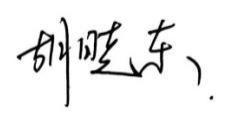 胡晓东